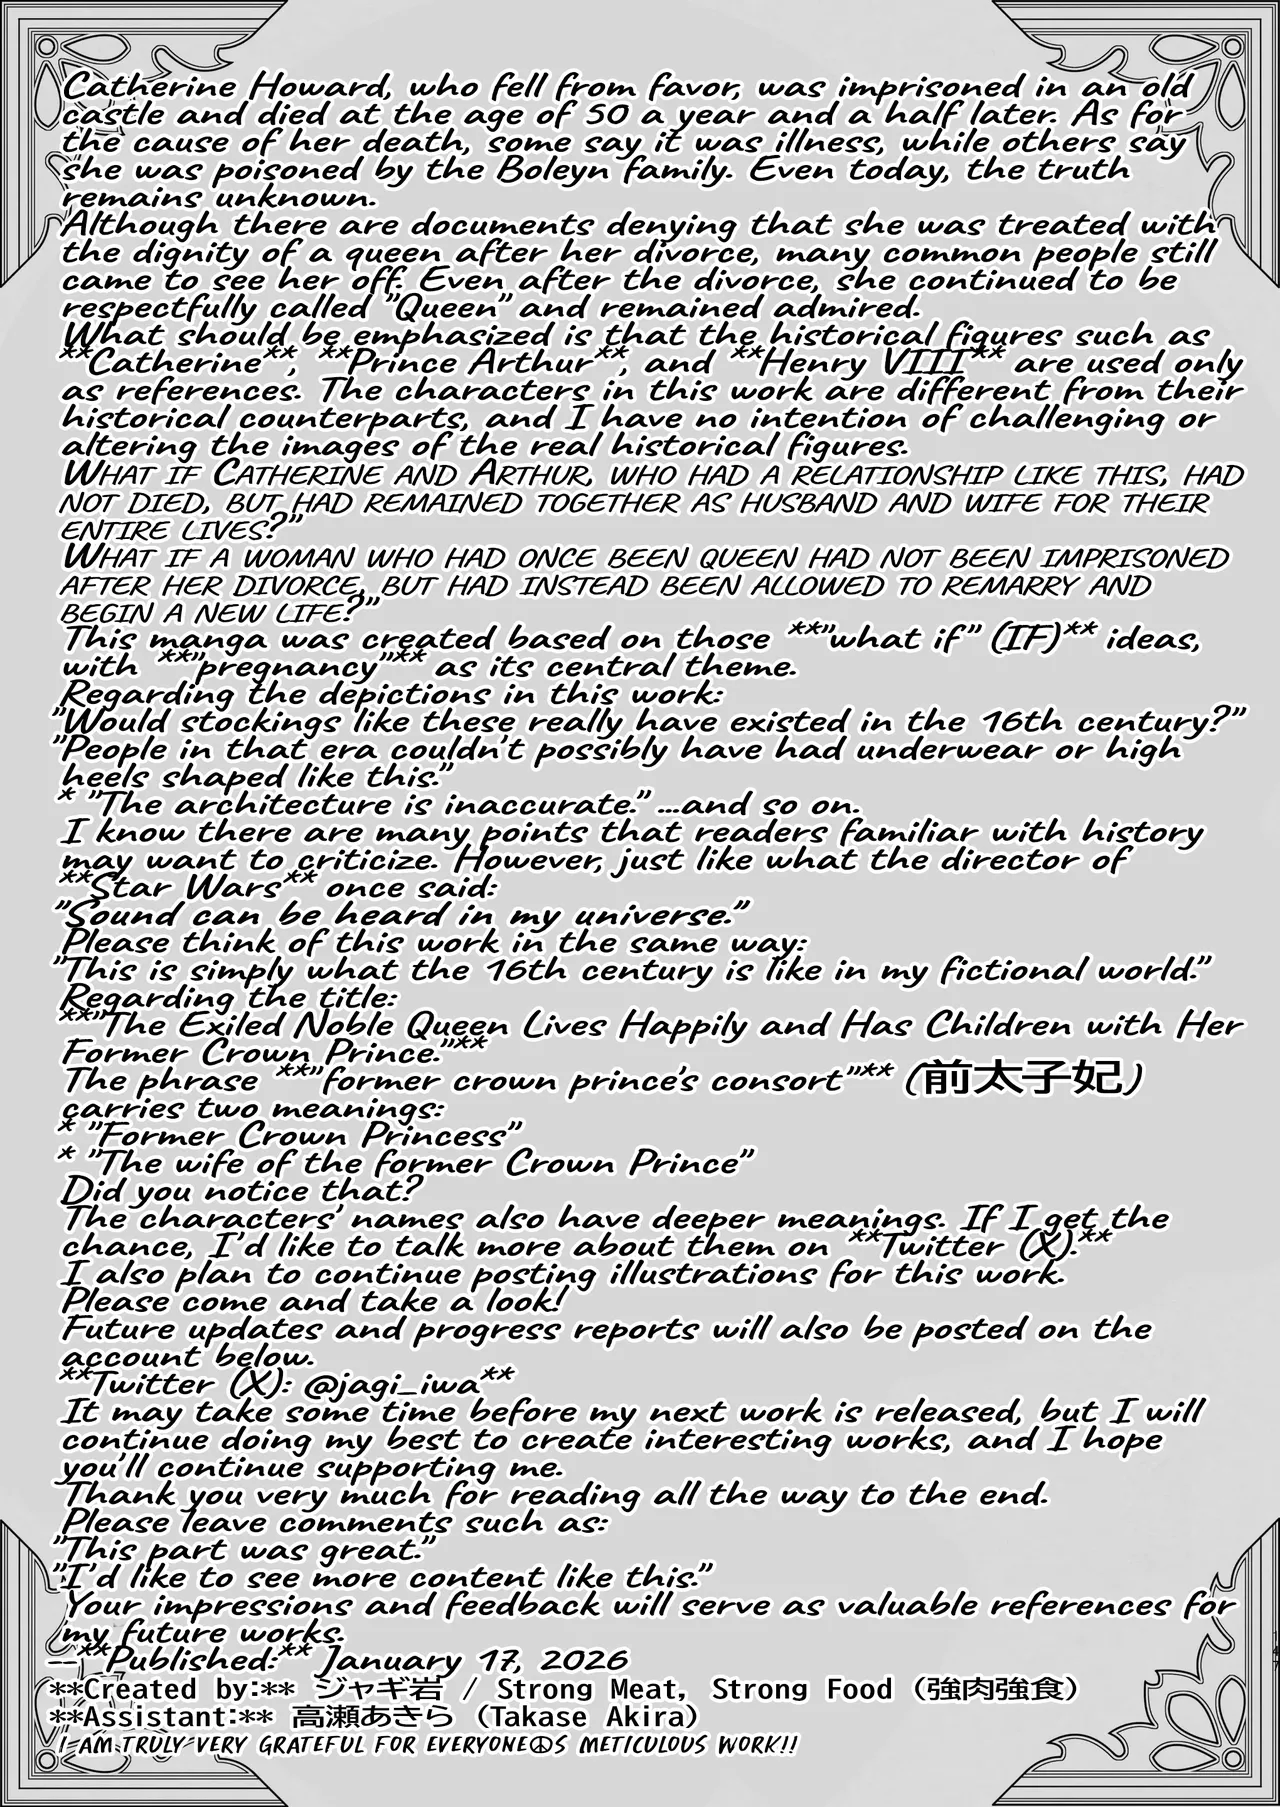 Catherine Howard, who fell from favor, was imprisoned in an old
castle and died at the age of 50 a year and a half later. As for
the cause of her death, some say it was illness, while others say
she was poisoned by the Boleyn family. Even today, the truth
remains unknown.
Although there are documents denying that she was treated with
the dignity of a queen after her divorce, many common people still
came to see her off. Even after the divorce, she continued to be
respectfully called "Queen" and remained admired.
What should be emphasized is that the historical figures such as
**Catherine**, **Prince Arthur**, and **Henry VIII** are used only
as references. The characters in this work are different from their
historical counterparts, and I have no intention of challenging or
altering the images of the real historical figures.
WHAT IF CATHERINE AND ARTHUR, WHO HAD A RELATIONSHIP LIKE THIS, HAD
NOT DIED, BUT HAD REMAINED TOGETHER AS HUSBAND AND WIFE FOR THEIR
ENTIRE LIVES?"
WHAT IF A WOMAN WHO HAD ONCE BEEN QUEEN HAD NOT BEEN IMPRISONED
AFTER HER DIVORCE, BUT HAD INSTEAD BEEN ALLOWED TO REMARRY AND
BEGIN A NEW LIFE?"
This manga was created based on those **"what if" (IF)** ideas,
with **"pregnancy"** as its central theme.
Regarding the depictions in this work:
"Would stockings like these really have existed in the 16th century?"
"People in that era couldn't possibly have had underwear or high
heels shaped like this."
* "The architecture is inaccurate." ...and so on.
I know there are many points that readers familiar with history
may want to criticize. However, just like what the director of
**Star Wars** once said:
"Sound can be heard in my universe."
Please think of this work in the same way:
"This is simply what the 16th century is like in my fictional world."
Regarding the title:
**"The Exiled Noble Queen Lives Happily and Has Children with Her
Former Crown Prince."**
The phrase **"former crown prince's consort"** (前太子妃)
carries two meanings:
* "Former Crown Princess"
* "The wife of the former Crown Prince"
Did you notice that?
The characters' names also have deeper meanings. If I get the
chance, I'd like to talk more about them on **Twitter (X).**
I also plan to continue posting illustrations for this work.
Please come and take a look!
Future updates and progress reports will also be posted on the
account below.
**Twitter (X): @jagi_iwa**
It may take some time before my next work is released, but I will
continue doing my best to create interesting works, and I hope
you'll continue supporting me.
Thank you very much for reading all the way to the end.
Please leave comments such as:
"This part was great."
"I'd like to see more content like this."
Your impressions and feedback will serve as valuable references for
my future works.
--**Published:** January 17, 2026
**Created by:** ジャギ岩 / Strong Meat, Strong Food (強肉強食)
**Assistant:** 高瀬あきら (Takase Akira)
I AM TRULY VERY GRATEFUL FOR EVERYONE☮S METICULOUS WORK!!
147